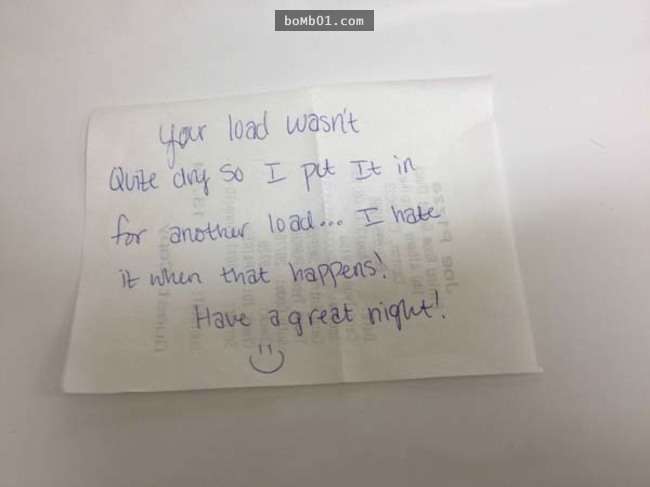 boMb01.com
Your load wasn't
Quite dry so I put It in
for another load... I hate
it when that happens!
Have a great night!